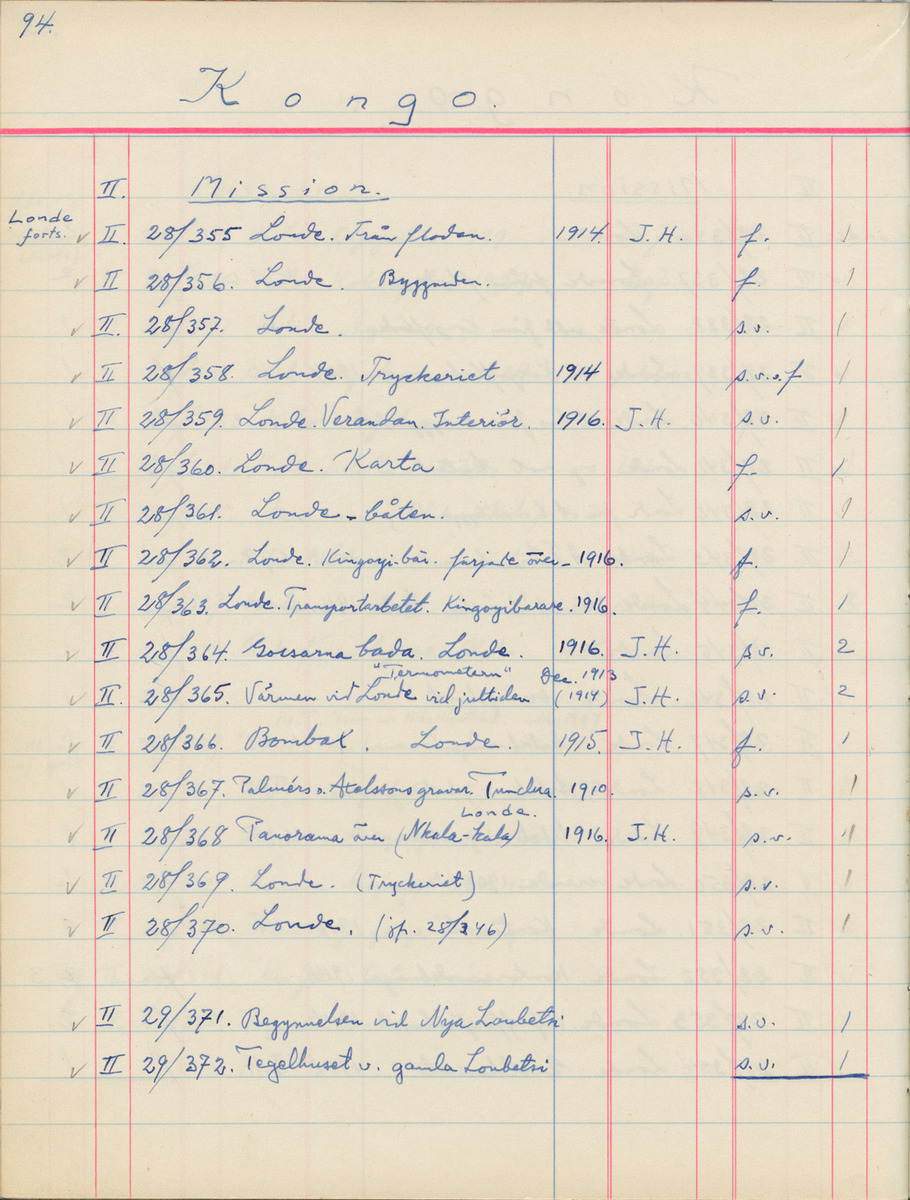 94.
Kongo.
II. Mission.
Londe
forts. ✓ II. 28/355 Londe. Från floden. 1914. J.H. f. 1
✓ II 28/356. Londe. Byggnader. f. 1
✓ II. 28/357. Londe. s.v. 1
✓ II 28/358. Londe. Tryckeriet 1914 s.v.o.f 1
✓ II 28/359. Londe. Verandan. Interiör. 1916. J.H. s.v. 1
✓ II 28/360. Londe. Karta f. 1
✓ II 28/361. Londe-båten. s.v. 1
✓ II 28/362. Londe. Kingoyi-bär. färjade över- 1916. f. 1
✓ II 28/363. Londe. Transportarbetet. Kingoyibärare. 1916. f. 1
✓ II 28/364. Gossarna bada. Londe. 1916. J.H. s.v. 2
"Termometern" Dec. 1913
✓ II. 28/365. Värmen vid Londe vid jultiden (1914) J.H. s.v. 2
✓ II 28/366. Bombax. Londe. 1915. J.H. f. 1
✓ II 28/367. Palmérs o. Axelssons gravar. Tundwa. 1910. s.v. 1
Londe.
✓ II 28/368 Panorama över (Nkala-kala) 1916. J.H. s.v. 1
✓ II 28/369. Londe. (Tryckeriet) s.v. 1
✓ II 28/370. Londe. (jf. 28/346) s.v. 1
✓ II 29/371. Begynnelsen vid Nya Loubetsi s.v. 1
✓ II 29/372. Tegelhuset v. gamla Loubetsi s.v. 1